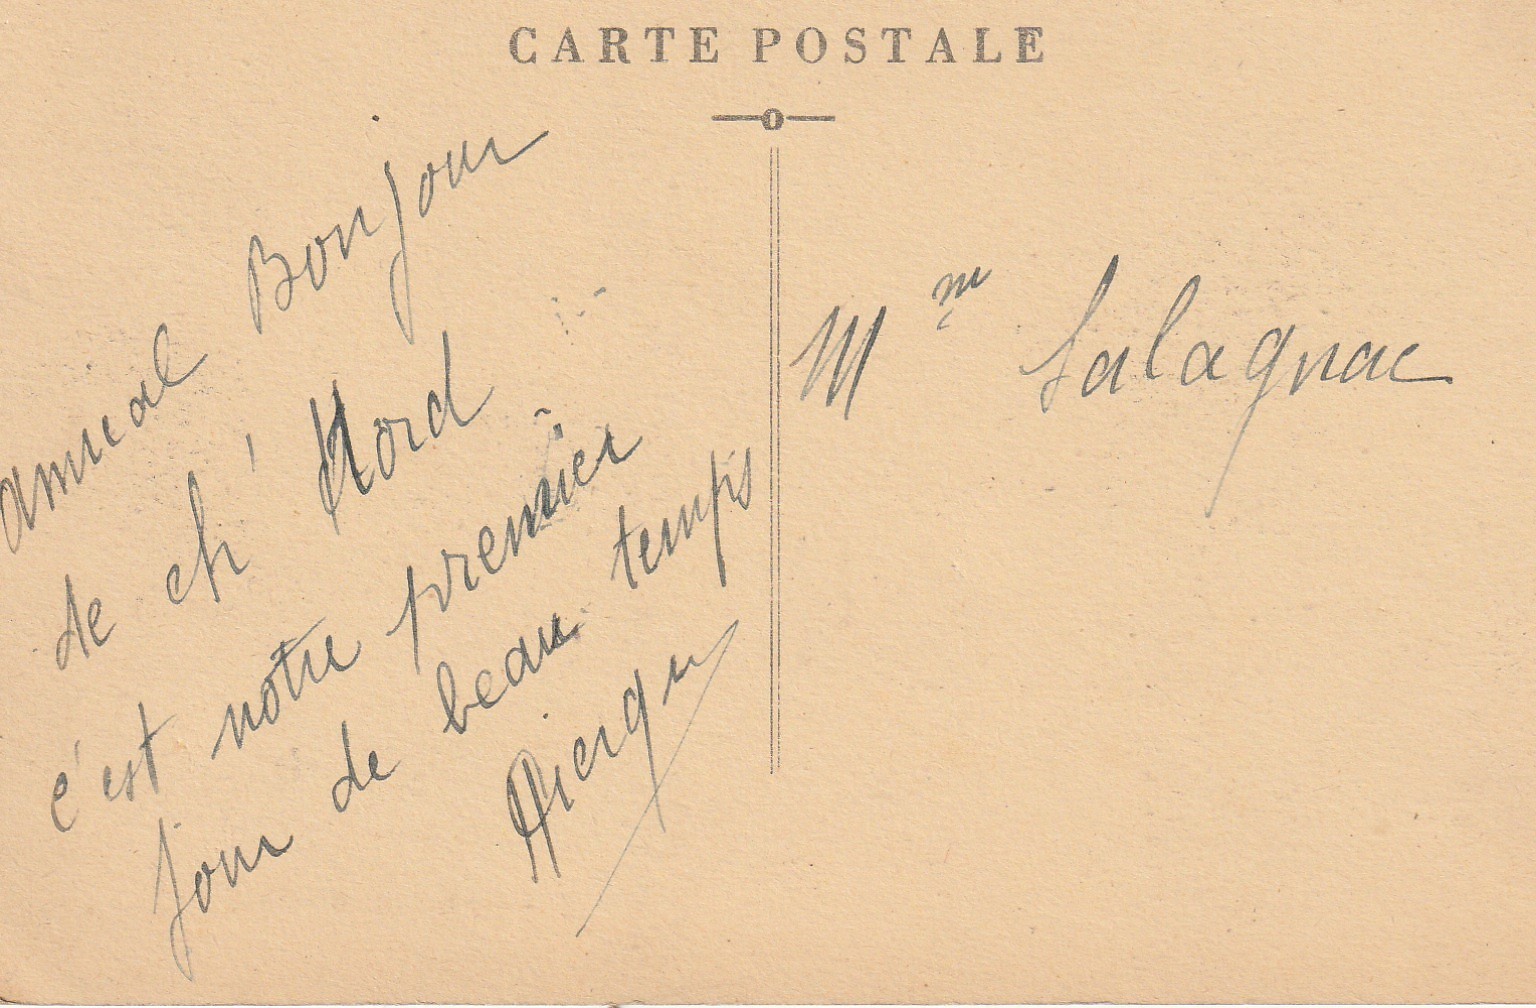 CARTE POSTALE
amical Bonjour
de ch' Nord
c'est notre premier
jour de beau temps
Mme Salagnac